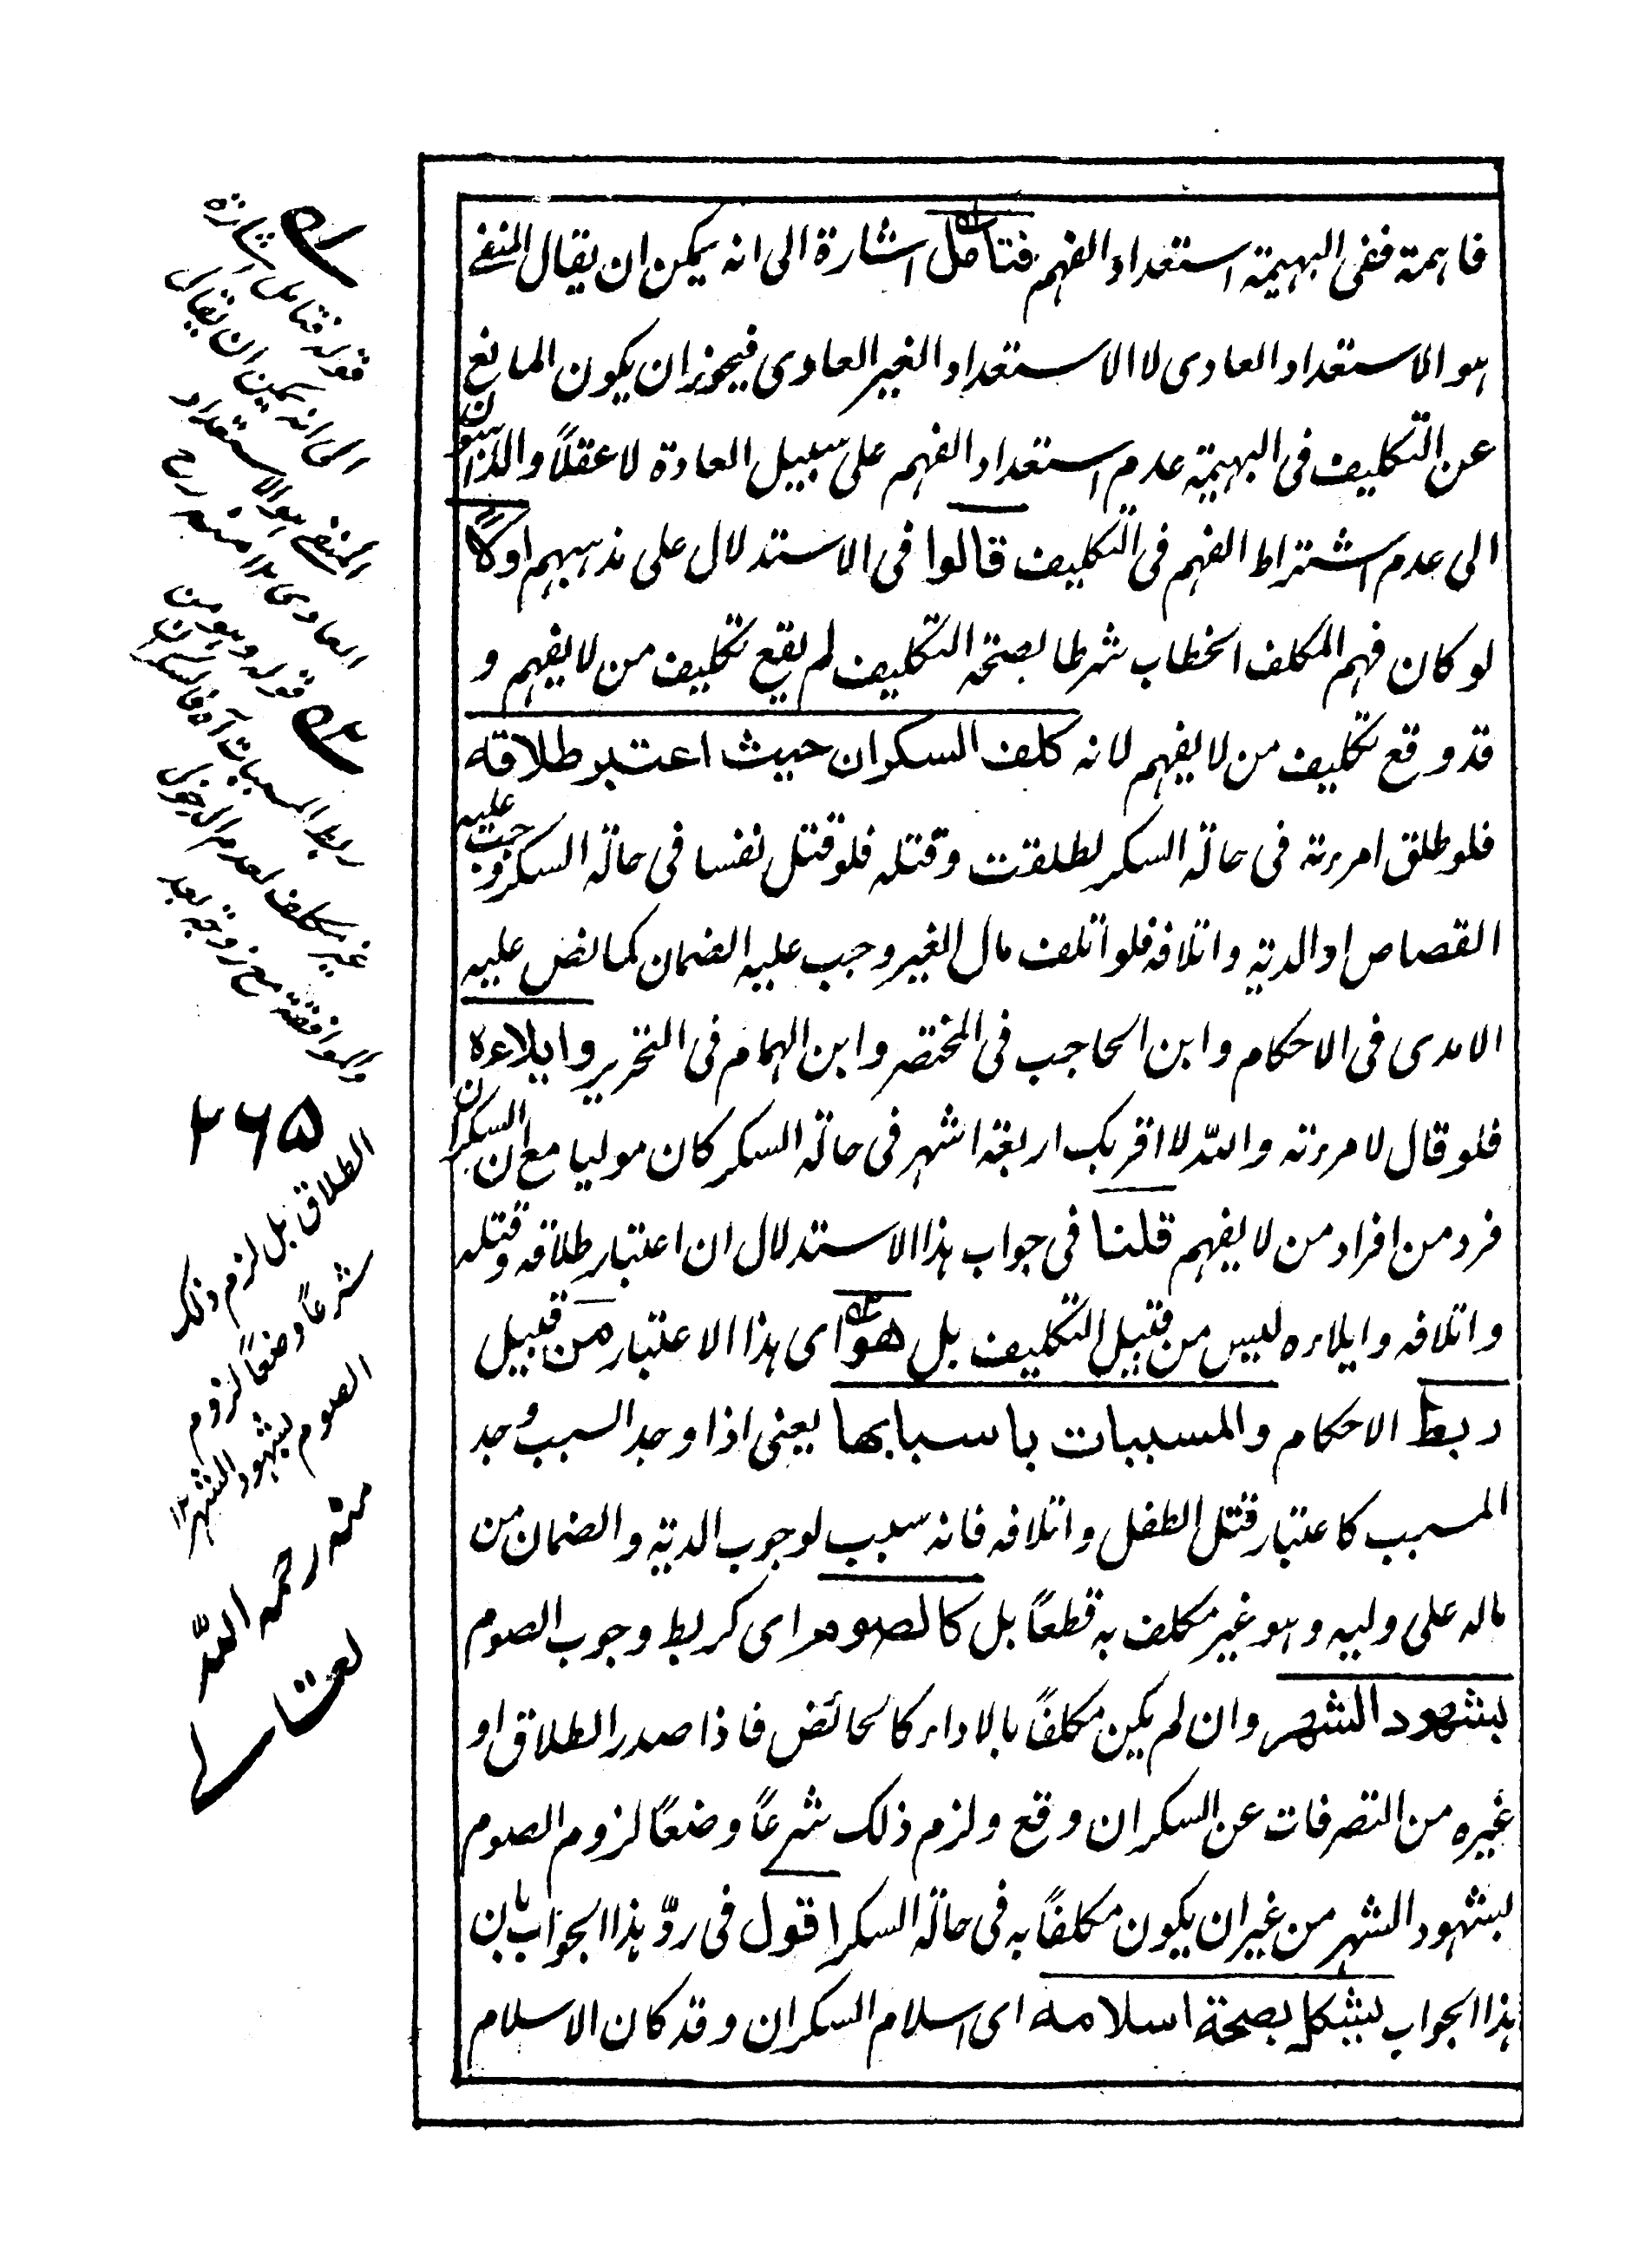 فاهمة ففى البهيمة استعداد الفهم فتأمل اشارة الى انه يمكن ان يقال المنفے
هو الاستعداد العادى لا الاستعداد الغير العادى فيجوز ان يكون المانع
عن التكليف فى البهيمة عدم استعداد الفهم على سبيل العادة لا عقلاً والذاهبون
الى عدم اشتراط الفهم فى التكليف قالوا فى الاستدلال على مذهبهم اولاً
لو كان فهم المكلف الخطاب شرطا لصحة التكليف لم يقع تكليف من لا يفهم و
قد وقع تكليف من لا يفهم لانه كلف السكران حيث اعتبر طلاقه
فلو طلق امرءته فى حالة السكر لطلقت وقتله فلو قتل نفسا فى حالة السكر وجب عليه
القصاص او الدية واتلافه فلو اتلف مال الغير وجب عليه الضمان كما نص عليه
الامدى فى الاحكام وابن الحاجب فى المختصر وابن الهمام فى التحرير وايلاءه
فلو قال لامرءته والله لا اقربك اربعة اشهر فى حالة السكر كان موليا مع ان السكران
فرد من افراد من لا يفهم قلنا فى جواب هذا الاستدلال ان اعتبار طلاقه وقتله
واتلافه وايلاءه ليس من قبيل التكليف بل هو اى هذا الاعتبار من قبيل
ربط الاحكام والمسببات باسبابها يعنى اذا وجد السبب وجد
المسبب كاعتبار قتل الطفل واتلافه فانه سبب لوجوب الدية والضمان من
ماله على وليه وهو غير مكلف به قطعاً بل كالصوم اى كربط وجوب الصوم
بشهود الشهر وان لم يكن مكلفاً بالاداء كالحائض فاذا صدر الطلاق او
غيره من التصرفات عن السكران وقع ولزم ذلك شرعاً وضعاً لزوم الصوم
بشهود الشهر من غير ان يكون مكلفاً به فى حالة السكر اقول فى ردّ هذا الجواب بان
هذا الجواب يشكل بصحة اسلامه اى اسلام السكران وقد كان الاسلام
قوله فتامل اشارة
الى انه يمكن ان يقال
المنفے هو الاستعداد
العادى ١٢ منه رح
قوله وهو من
ربط المسببات آه فالسكران
غير مكلف
مع زوجة بعد
٢٦٥
الطلاق بل لزم ذلك
شرعاً وضعاً لزوم
الصوم بشهود الشهر ١٢
منه رحمه الله
تعالے